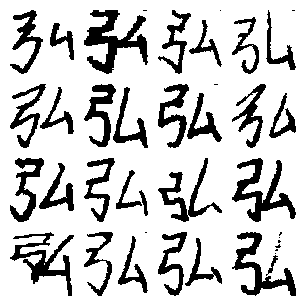 弘弘弘弘
弘弘弘弘
弘弘弘弘
弘弘弘弘